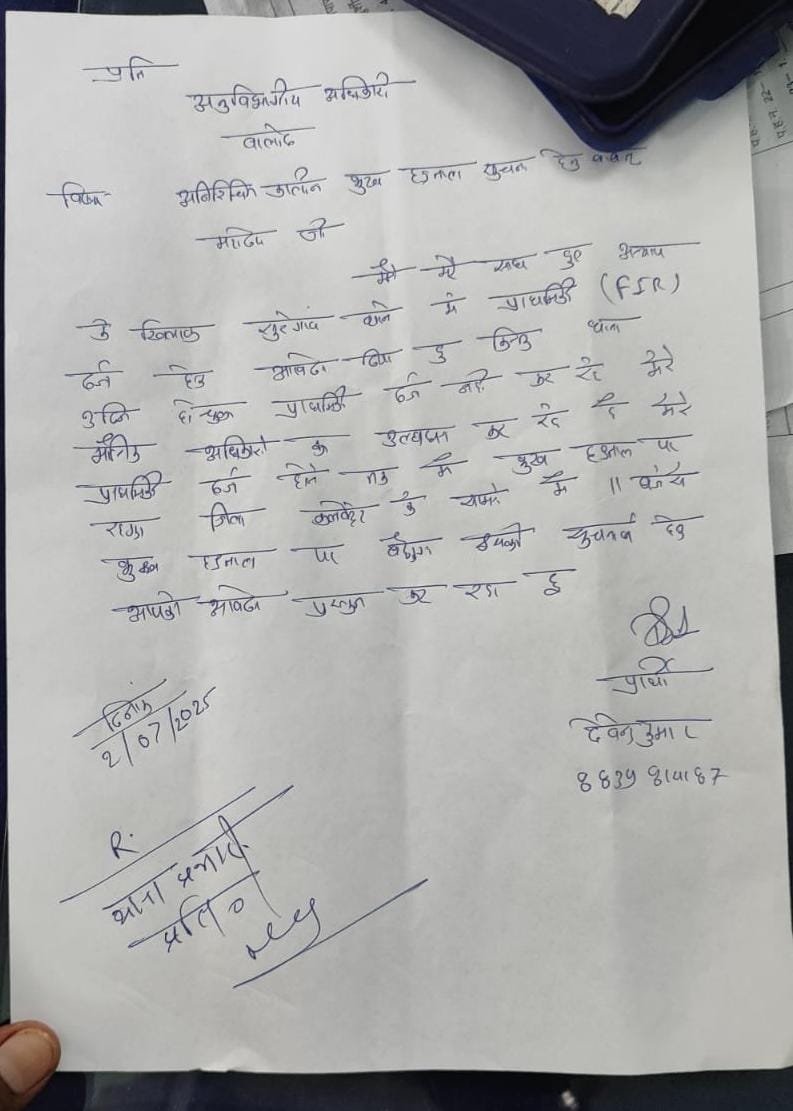 प्रति
अनुविभागीय अधिकारी
बालोद
विषय अनिश्चित कालीन भुख हड़ताल सुचना हेतु बाबत्
महोदय जी
मैं मेरे साथ हुए अन्याय
के खिलाफ सुरेगांव थाने में प्राथमिकी (FIR)
दर्ज हेतु आवेदन दिया हु किन्तु थाना
प्राथमिकी दर्ज नही कर रहे मेरे
मौलिक अधिकारों का उल्लंघन कर रहे है मेरे
प्राथमिकी दर्ज होने तक मैं भुख हड़ताल पर
रहुंगा जिला कलेक्टर के सामने मैं 11 बजे से
भुख हड़ताल पर बैठुंगा इसकी सुचनार्थ हेतु
आपको आवेदन प्रस्तुत कर रहा हुं
प्रार्थी
देवेन्द्र कुमार
दिनांक
2/07/2025
R.
थाना प्रभारी
प्रति०